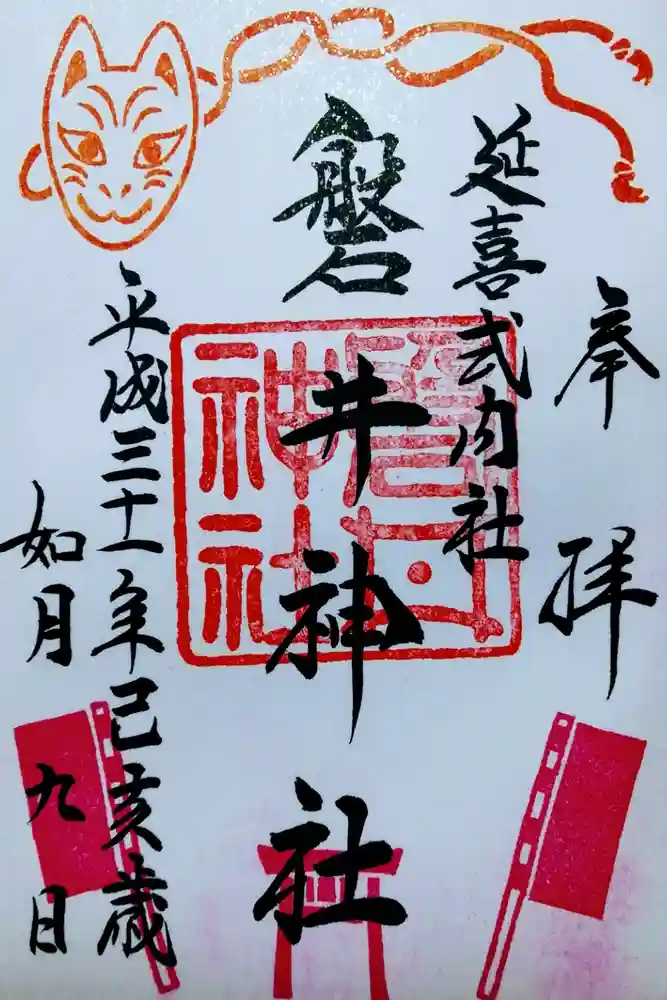 奉拝
延喜式内社
磐井神社
平成三十一年己亥歳
如月九日
磐井神社